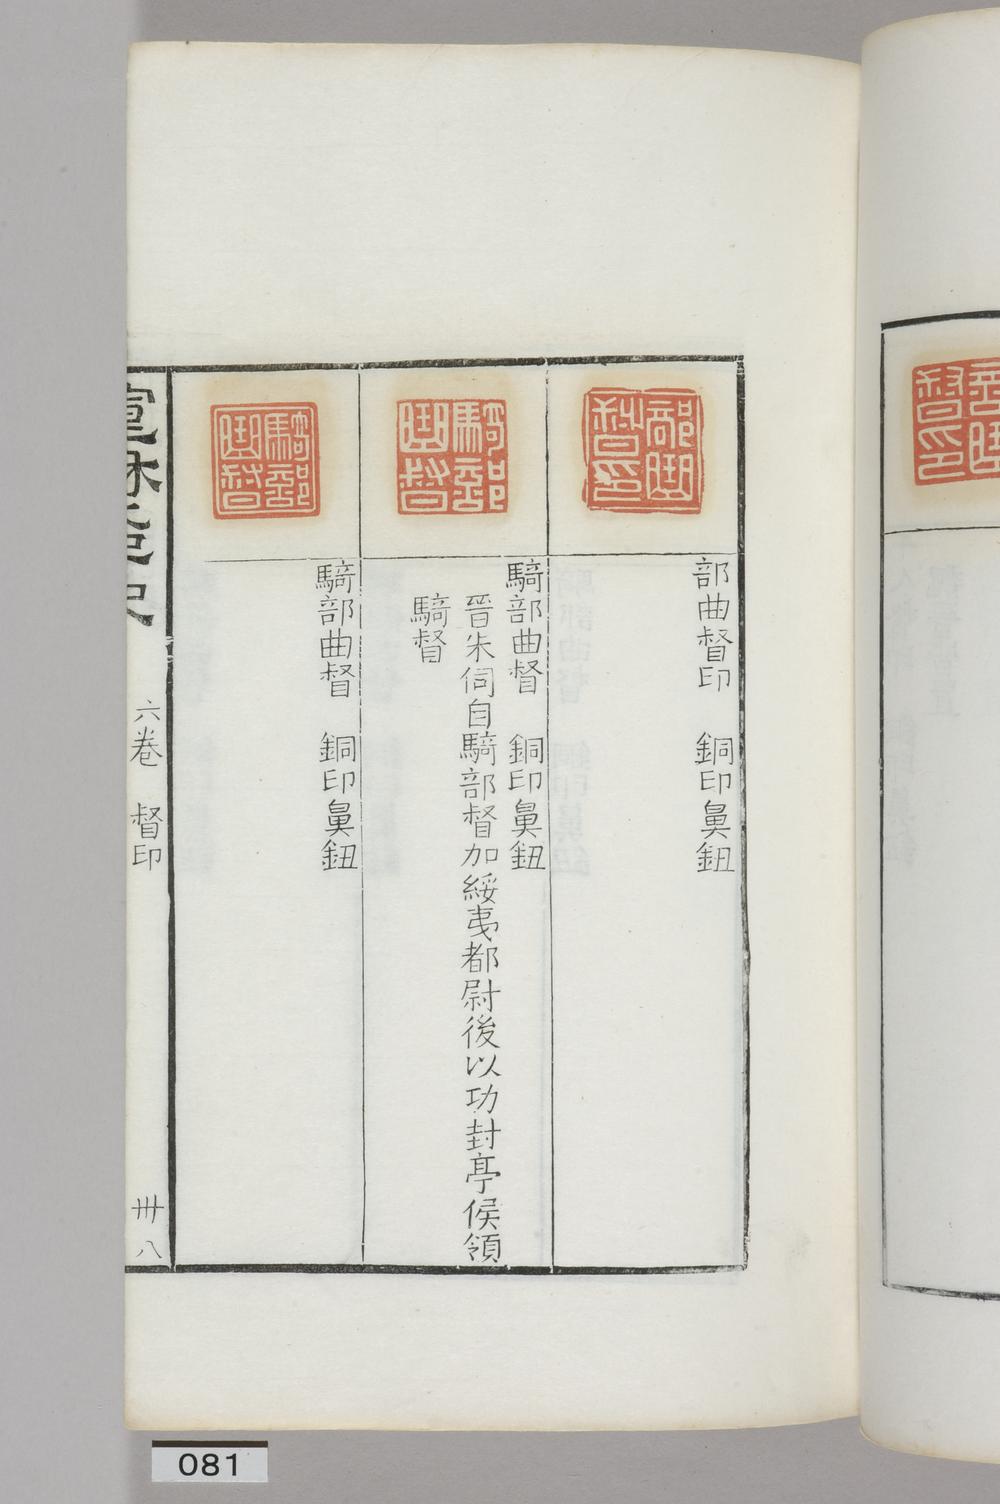 部曲督印
部曲督印　銅印鼻鈕
騎部曲督
騎部曲督　銅印鼻鈕
晉朱伺自騎部督加綏夷都尉後以功封亭侯領
騎督
騎部曲督
騎部曲督　銅印鼻鈕
六卷　督印
卅八
081